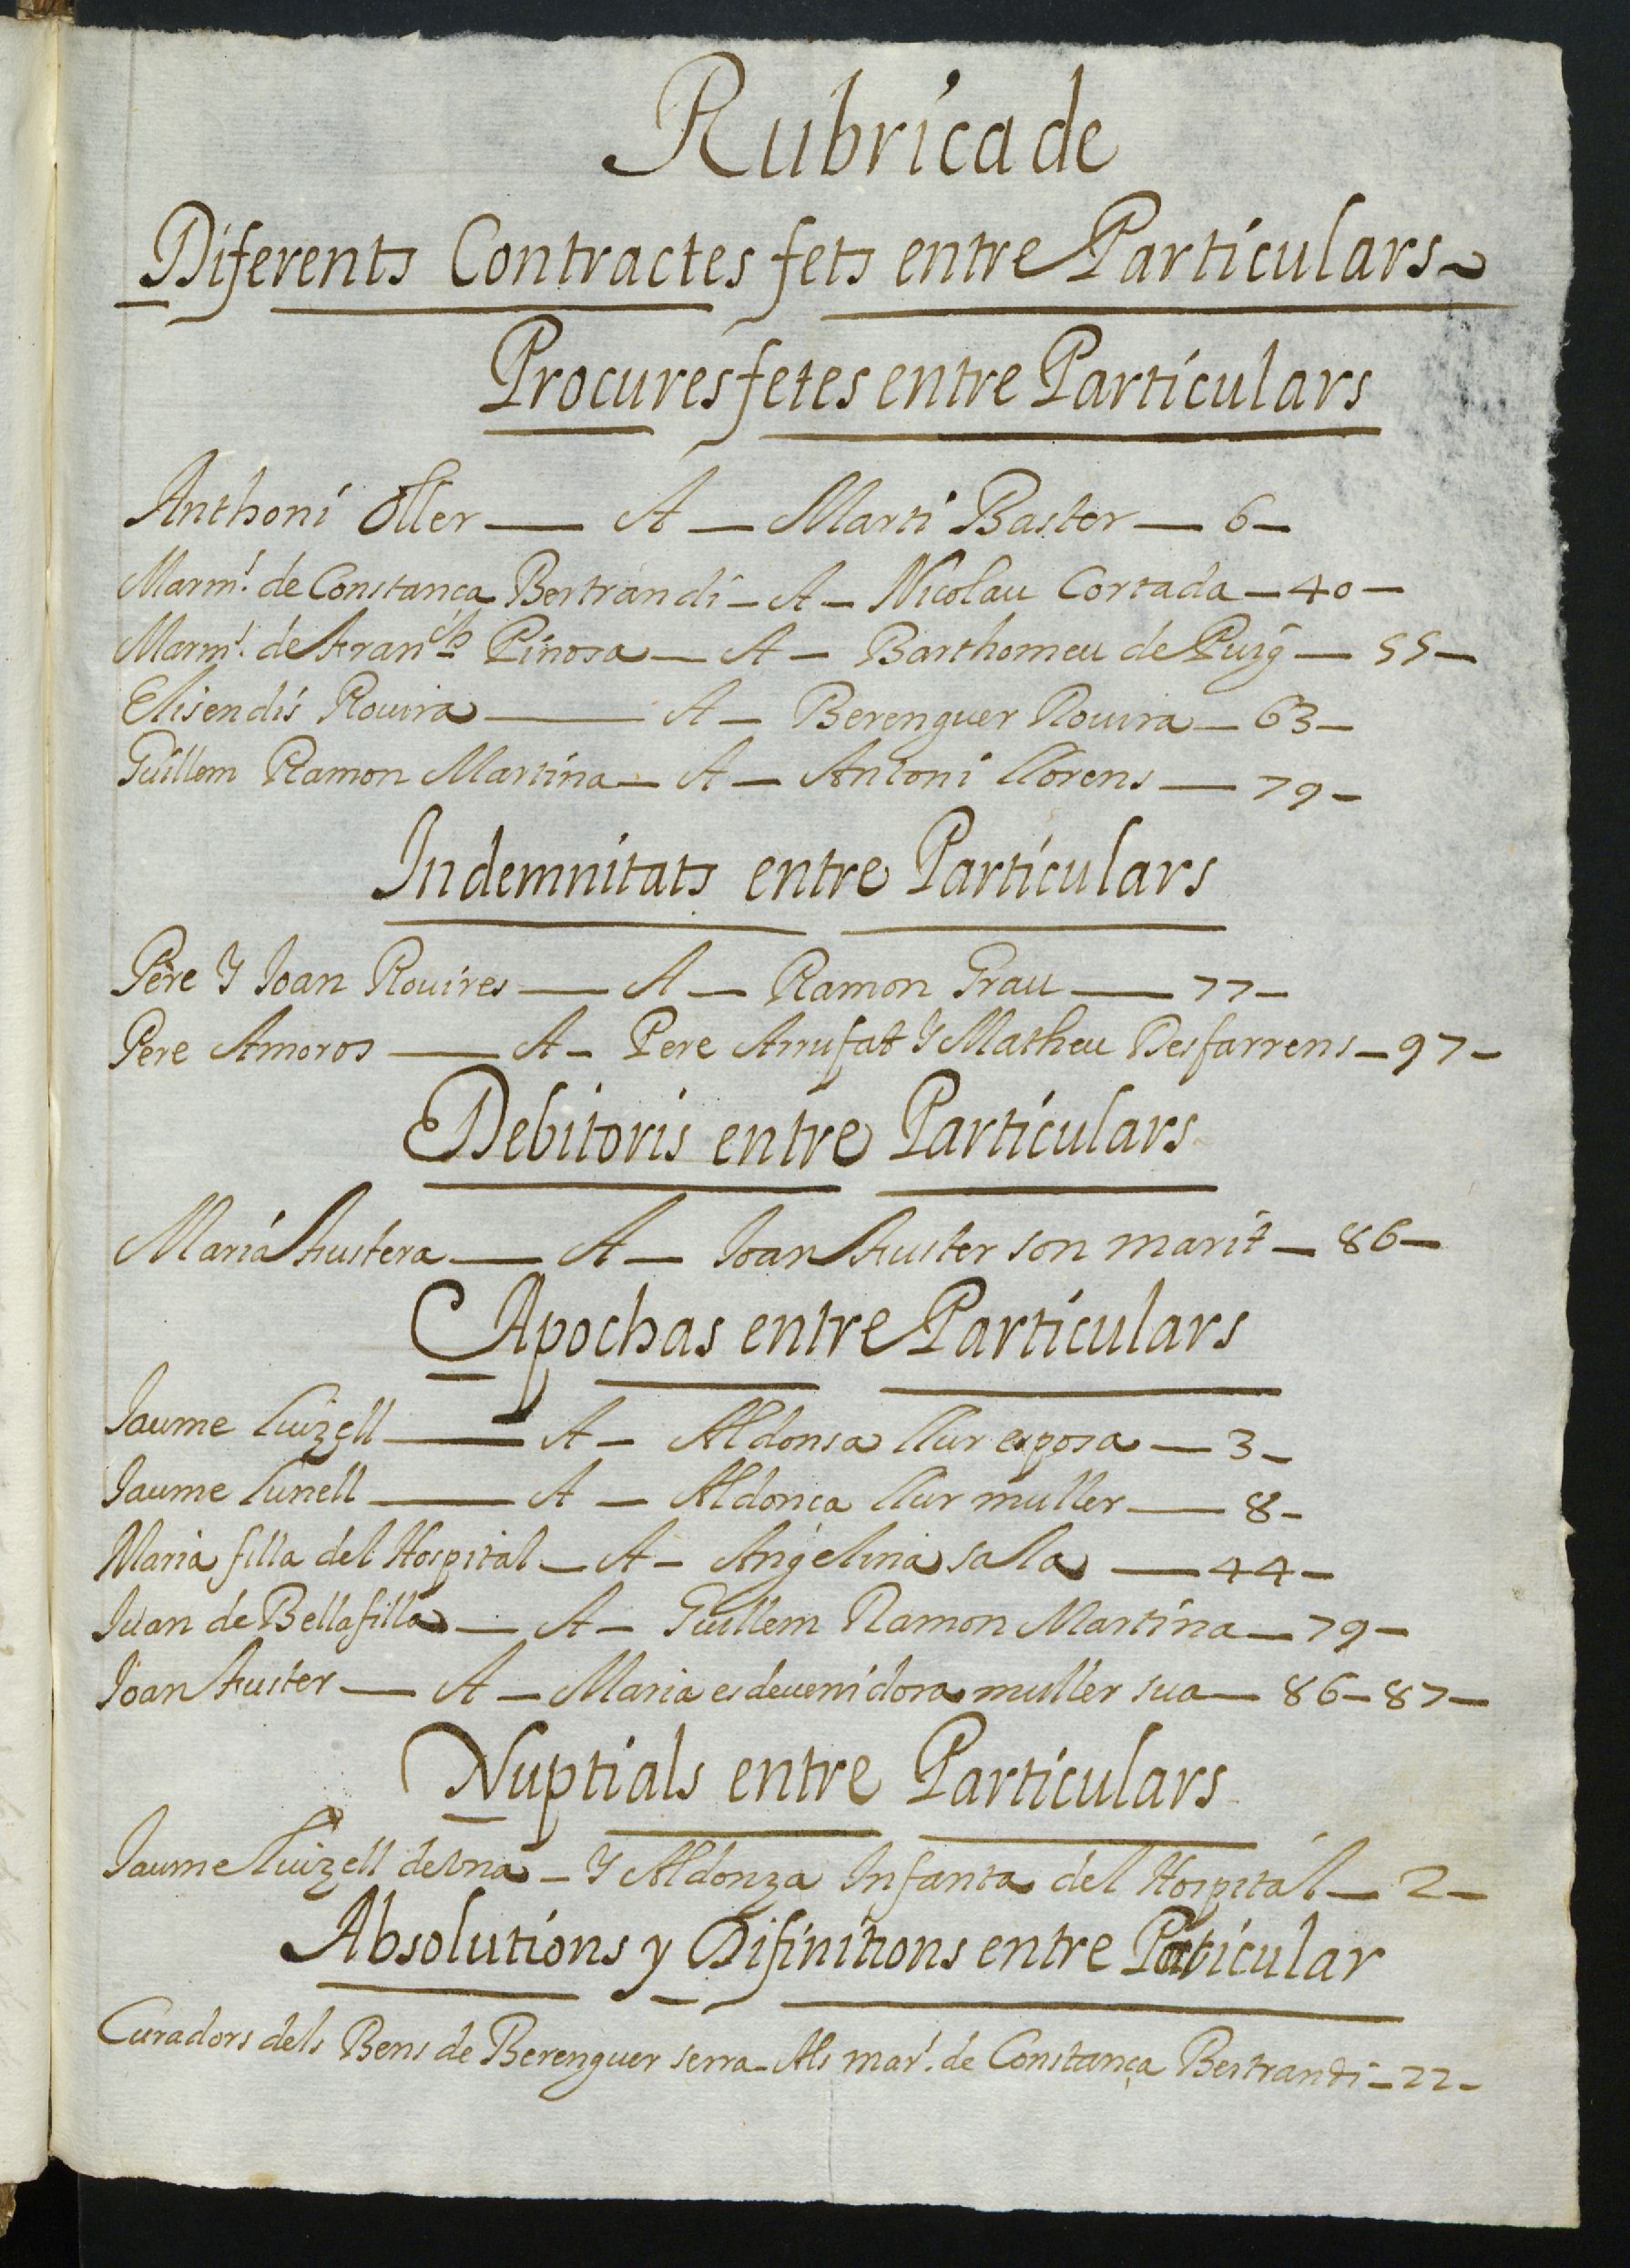 Rubrica de
Diferents Contractes fets entre Particulars
Procures fetes entre Particulars
Anthoni Oller — A — Marti Baster — 6 —
Marm.ˢ de Constança Bertrandi — A — Nicolau Cortada — 40 —
Marm.ˢ de Fran.ᶜʰ Pinosa — A — Barthomeu de Puig — 55 —
Elisendis Rouira — A — Berenguer Rouira — 63 —
Guillem Ramon Martina — A — Antoni llorens — 79 —
Indemnitats entre Particulars
Pere Y Joan Rouires — A — Ramon Grau — 77 —
Pere Amoros — A — Pere Arrufat Y Matheu Desfarrens — 97 —
Debitoris entre Particulars
Maria Fustera — A — Joan Fuster son marit — 86 —
Apochas entre Particulars
Jaume — A — Aldonsa llur esposa — 3 —
Jaume — A — Aldonça llur muller — 8 —
Maria filla del Hospital — A — Angelina salla — 44 —
Juan de Bellafilla — A — Guillem Ramon Martina — 79 —
Joan Fuster — A — Maria esdevenidora muller sua — 86 — 87 —
Nuptials entre Particulars
Jaume de una — Y Aldonza Infanta del Hospital — 2 —
Absolutions y Difinitions entre Particular
Curadors dels Bens de Berenguer serra — Als mar.ˢ de Constança Bertrandi — 22 —